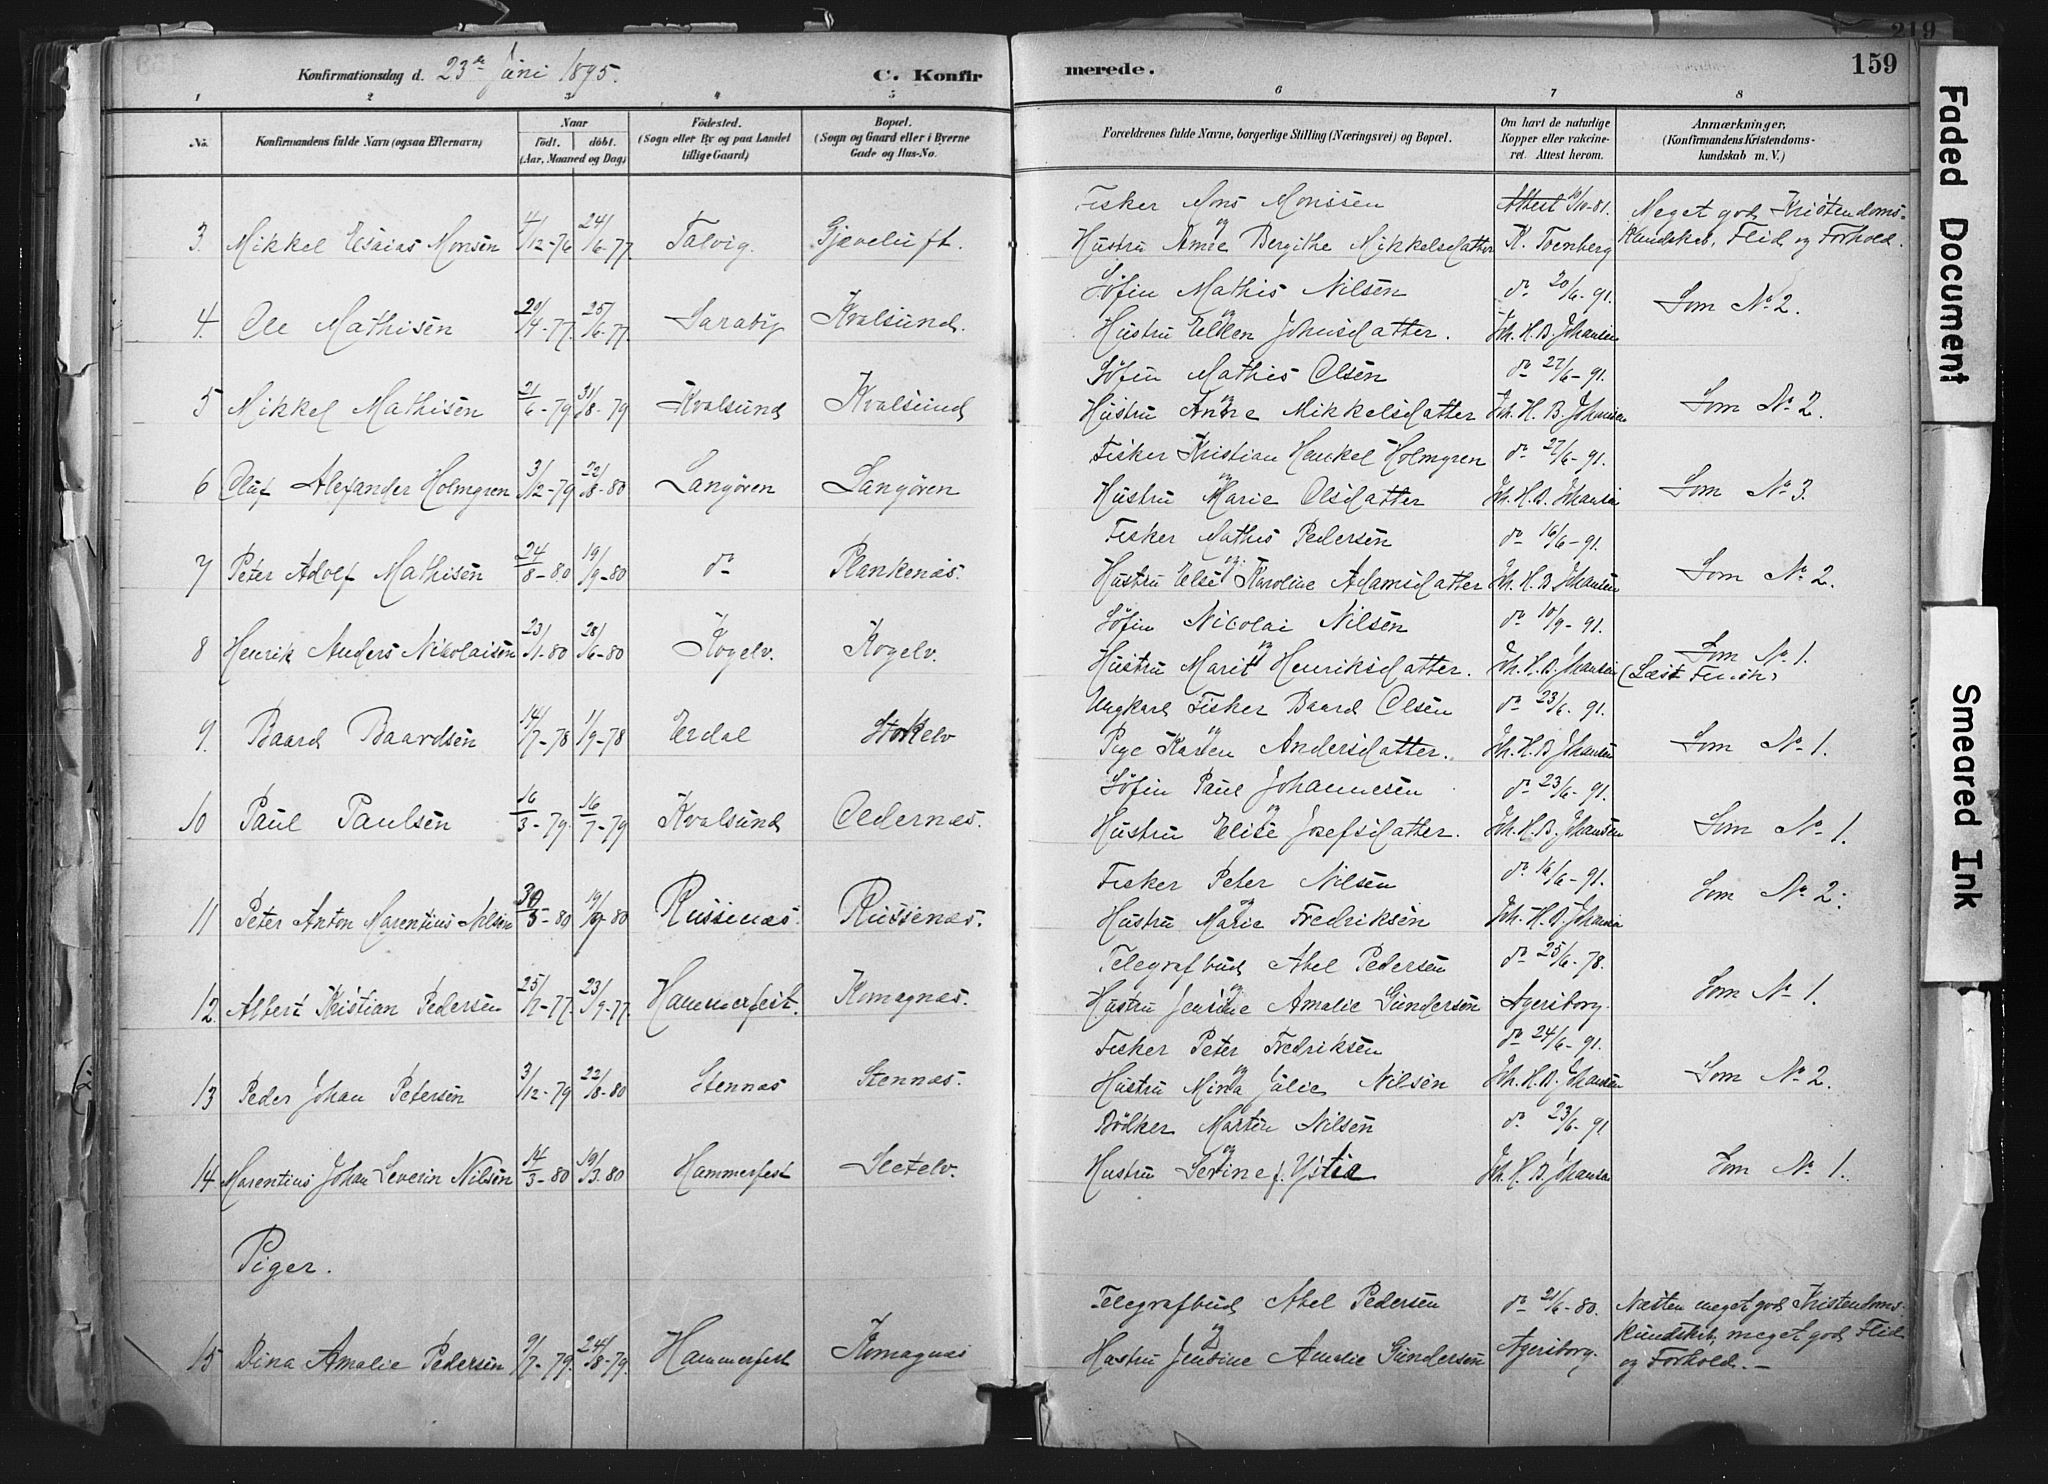 219
159
Konfirmationsdag d. 23de Juni 1895. C. Konfirmerede.
1 2 3 4 5 6 7 8
No. Konfirmandens fulde Navn (ogsaa Efternavn) Naar født. døbt. (Aar, Maaned og Dag) Fødested. (Sogn eller By og paa Landet tillige Gaard) Bopæl. (Sogn og Gaard eller i Byerne Gade og Hus-No. Forældrenes fulde Navne, borgerlige Stilling (Næringsvei) og Bopæl. Om havt de naturlige Kopper eller vakcineret. Attest herom. Anmærkninger, (Konfirmandens Kristendomskundskab m. V.)
Fisker Mons Monssen Attest /10-81. Meget god Kristendoms-
3. Mikkel Esaias Monsen 4/12-76 24/6-77. Talvig. Gjæveluft. og Hustru Anne Bergithe Mikkelsdatter K. Toenberg Kundskab, Flid og Forhold.
Søfin Mathis Nilsen do 20/6-91.
4. Ole Mathisen 20/4-77. 25/6-77. Saraby Kvalsund. og Hustru Ellen Johnsdatter. Joh. H. B. Johansen Som No 2.
Søfin Mathis Olsen do 27/6-91.
5 Mikkel Mathisen 21/6-79 31/8-79 Kvalsund Kvalsund og Hustru Anne Mikkelsdatter Joh. H. B. Johansen Som No 2.
Fisker Kristian Henkel Holmgren do 27/6-91.
6 Oluf Alexander Holmgren 3/12-79 22/8-80 Langøren Langøren og Hustru Marie Olsdatter Joh. H. B. Johansen Som No 3.
Fisker Mathis Pedersen do 16/6-91.
7 Peter Adolf Mathisen 24/8-80 19/9-80 do Plankenæs. og Hustru Else Karoline Adamsdatter Joh. H. B. Johansen Som No 2.
Søfin Nicolai Nilsen do 10/9-91.
8 Henrik Anders Nikolaisen 23/1-80 28/6-80 Kogelv. Kogelv. og Hustru Marit Henriksdatter. Joh. H. B. Johansen Som No 1.
(Læst Finsk)
Ungkarl Fisker Baard Olsen do 23/6-91.
9. Baard Baardsen 14/7-78 1/9-78 Erdal Stokelv og Pige Karen Andersdatter. Joh. H. B. Johansen Som No 1.
Søfin Paul Johannesen do 23/6-91.
10 Paul Paulsen 16/3-79. 16/7-79 Kvalsund Oldernæs. og Hustru Elise Josefsdatter. Joh. H. B. Johansen Som No 1.
Fisker Peter Nilsen do 16/6-91.
11 Peter Anton Marentius Nilsen 30/5-80 19/9-80 Russenæs. Russenæs. og Hustru Marie Fredriksen Joh. H. B. Johansen Som No 2.
Telegrafbud Abel Pedersen do 25/6-78.
12. Albert Kristian Pedersen 25/7-77. 23/9-77. Hammerfest. Komagnæs. og Hustru Jensine Amalie Gundersen Agersborg. Som No 1.
Fisker Peter Fredriksen do 24/6-91.
13 Peder Johan Petersen 3/12-79 22/8-80 Stennæs Stennæs. og Hustru Mina Julie Nilsen Joh. H. B. Johansen Som No 2.
Bødker Martin Nilsen do 23/6-91
14 Marentius Johan Severin Nilsen 14/3-80 19/3.80 Hammerfest og Hustru Serine f. Joh. H. B. Johansen Som No 1.
Piger.
Telegrafbud Abel Pedersen do 21/6-80. Næsten meget god Kristendoms-
15 Dina Amalie Pedersen 9/7-79. 24/8-79. Hammerfest Komagnæs og Hustru Jensine Amalie Gundersen Agersborg. Kundskab, meget god Flid
og Forhold. -
Faded Document
Smeared Ink